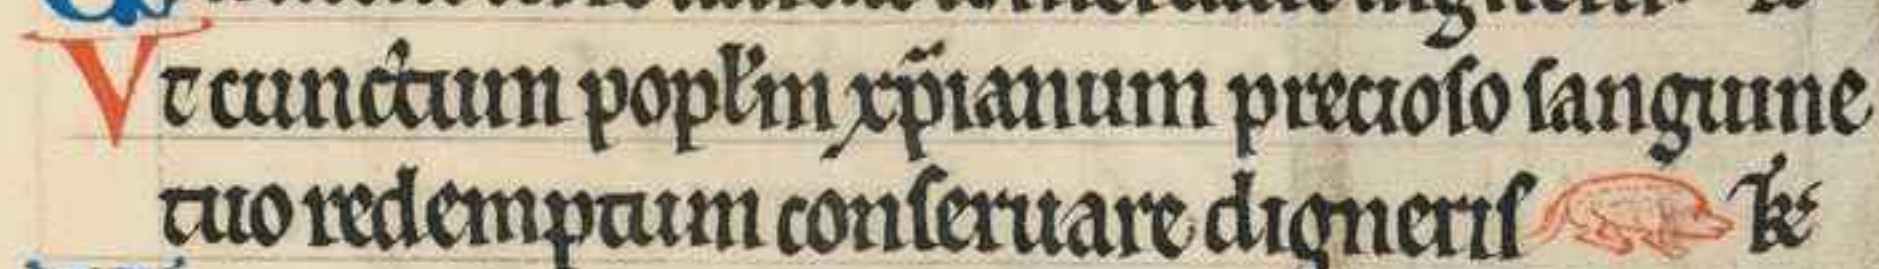 Vt cunctum popl'm xp̄ianum precioso sanguine
tuo redemptum conseruare digneris